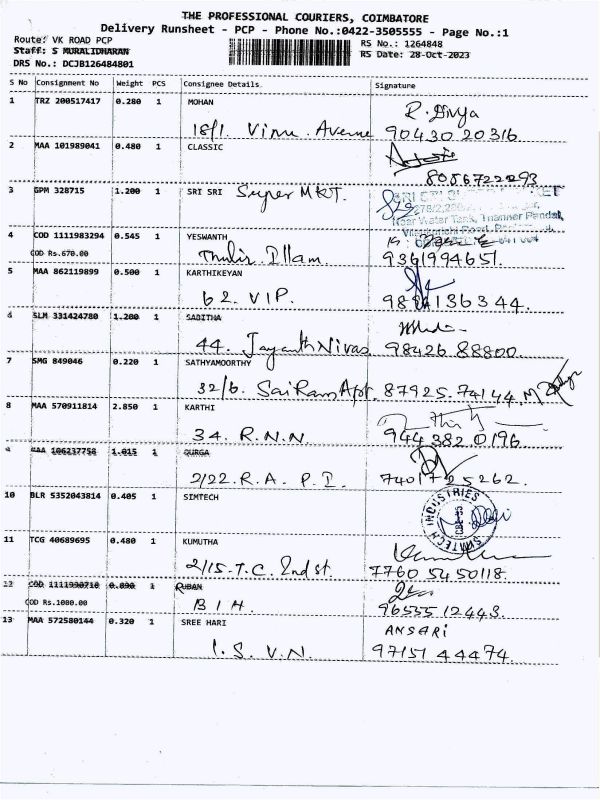 THE PROFESSIONAL COURIERS, COIMBATORE
Delivery Runsheet - PCP - Phone No.:0422-3505555 - Page No.:1
Route: VK ROAD PCP RS No.: 1264848
Staff: S MURALIDHARAN RS Date: 28-Oct-2023
DRS No.: DCJB126484801
S No Consignment No Weight PCS Consignee Details Signature
1 TRZ 200517417 0.280 1 MOHAN R. Divya
18/1. Vinu. Avenue 90430 20316
2 MAA 101989041 0.480 1 CLASSIC
8056722293
3 GPM 328715 1.200 1 SRI SRI Super MKT.
Near Water Tank, Thanneer Pandal,
4 COD 1111983294 0.545 1 YESWANTH
COD Rs.670.00 Illam. 9361994651.
5 MAA 862119899 0.500 1 KARTHIKEYAN
62. VIP. 136344.
6 SLM 331424780 1.200 1 SABITHA
44. Jayanth Nivas 98426.88800.
7 SMG 849046 0.220 1 SATHYAMOORTHY
32/6. Sai Ram Apt. 87925.74144. M
8 MAA 570911814 2.850 1 KARTHI
34. R.N.N. 944 382 0196
9 MAA 106237758 1.015 1 DURGA
2/22. R.A. P.I. 7401725262.
10 BLR 5352043814 0.405 1 SIMTECH SIMTECH INDUSTRIES
11 TCG 40689695 0.480 1 KUMUTHA
2/15-T.C. 2nd st. 7760 54 50118.
12 COD 1111990710 0.090 1 RUBAN
COD Rs.1080.00 B I H. 96555 12443.
13 MAA 572580144 0.320 1 SREE HARI ANSARI
1. S. V.N. 97151 44474.